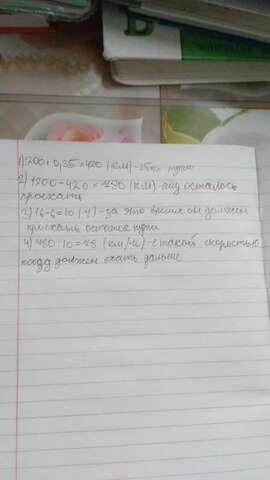 1)1200 · 0,35 = 420 (км) - 35% пути
2) 1200 - 420 = 780 (км) - ему осталось
проехать
3) 16-6=10 (ч) - за это время он должен
проехать остаток пути
4) 780 : 10 = 78 (км/ч) - с такой скоростью
поезд должен ехать дальше